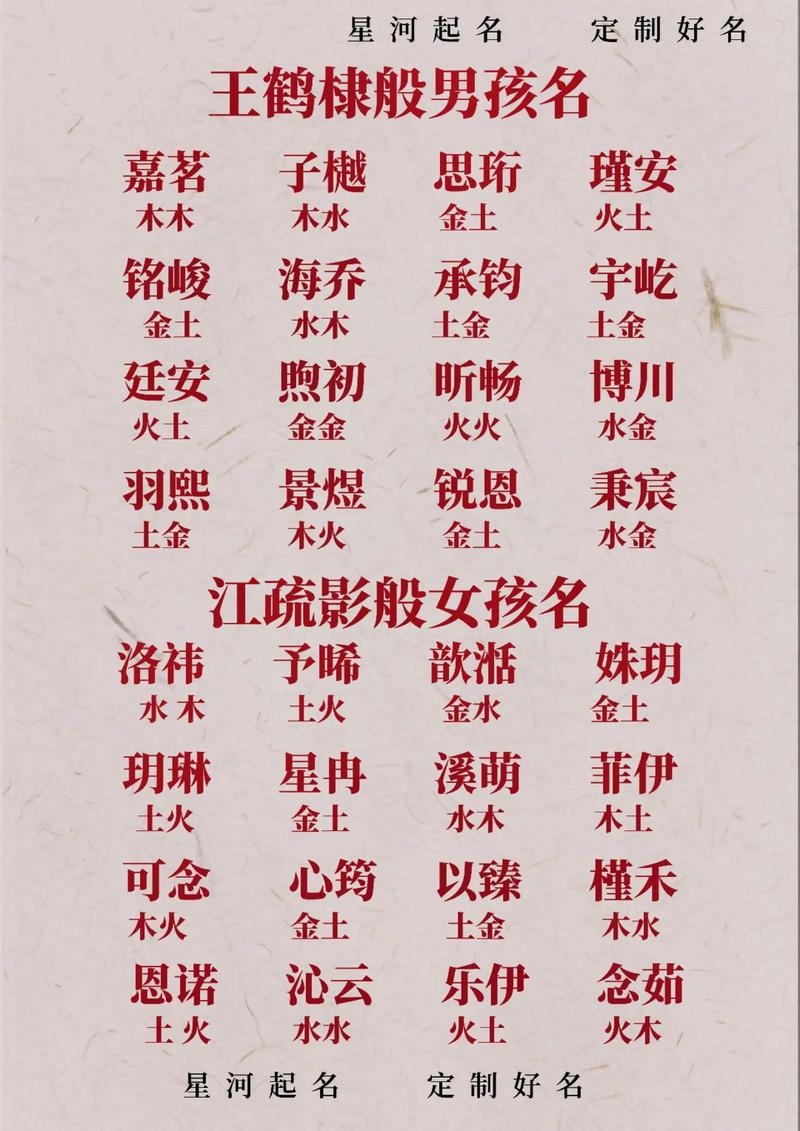 星河起名 定制好名
王鹤棣般男孩名
嘉茗 子樾 思珩 瑾安
木木 木水 金土 火土
铭峻 海乔 承钧 宇屹
金土 水木 土金 土金
廷安 煦初 昕畅 博川
火土 金金 火火 水金
羽熙 景煜 锐恩 秉宸
土金 木火 金土 水金
江疏影般女孩名
洛祎 予晞 歆湉 姝玥
水木 土火 金水 金土
玥琳 星冉 溪萌 菲伊
土火 金土 水木 木土
可念 心筠 以臻 槿禾
木火 金土 土金 木水
恩诺 沁云 乐伊 念茹
土火 水水 火土 火木
星河起名 定制好名